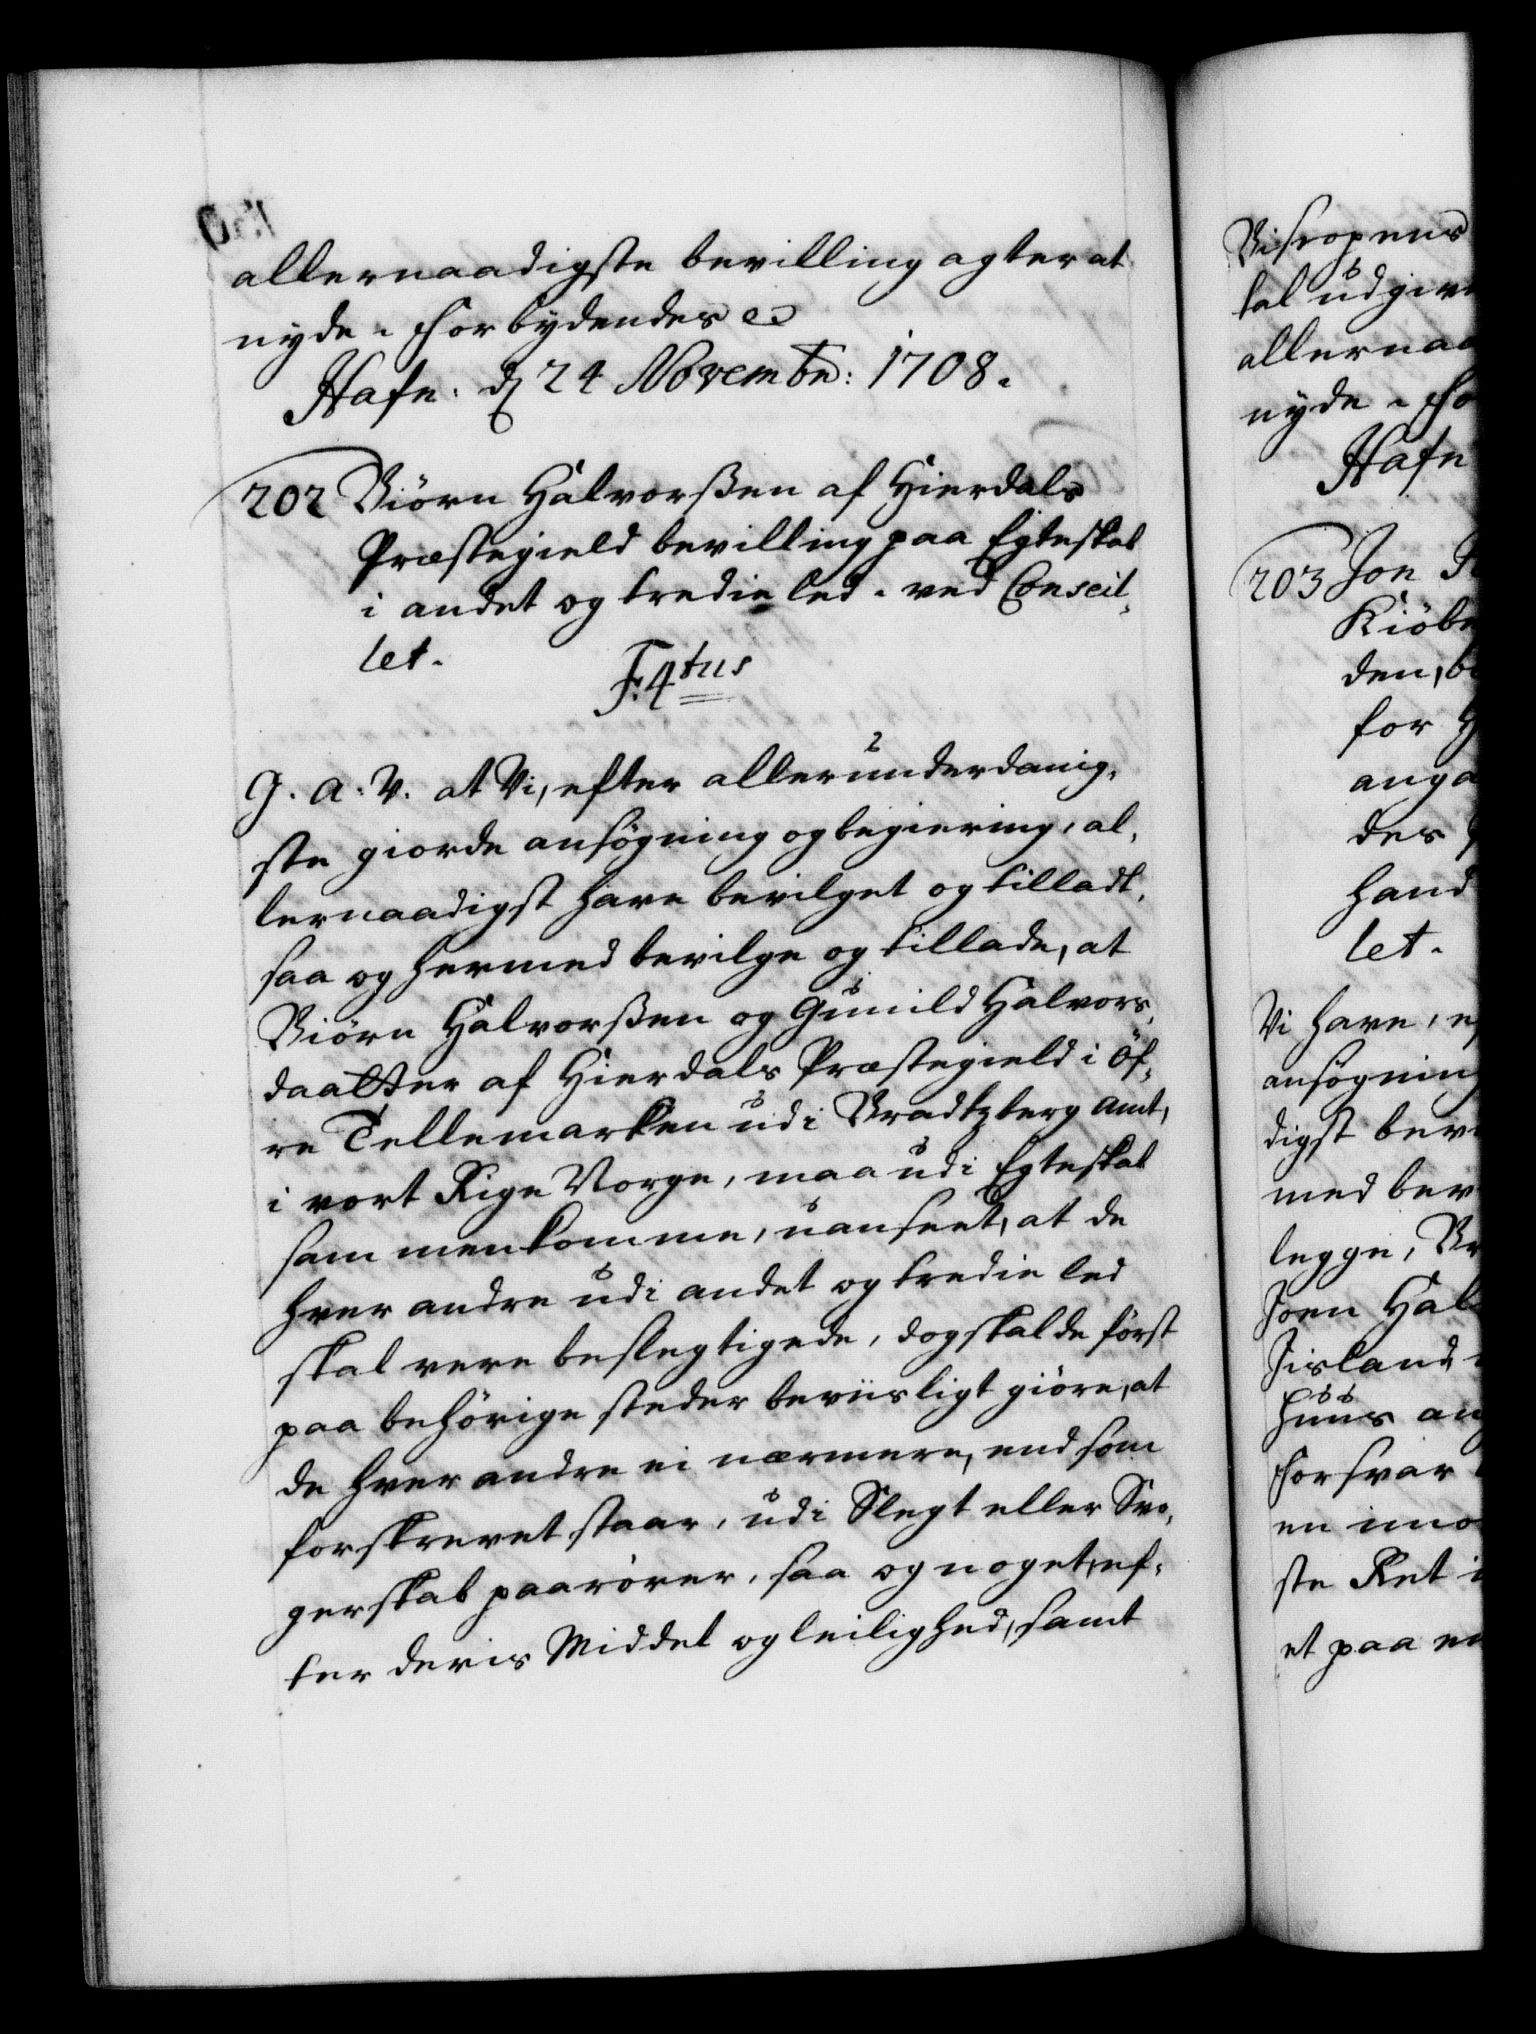 allernaadigste bevilling agter at
nyde. Forbydendes etc
Hafn. d 24 Novembr: 1708.
202 Biörn Halvorßen af Hierdals
Præstegield bevilling paa Egteskab
i andet og tredie led. ved Conseil-
let.
F:4tus
G. A. V. at Vi, efter allerunderdanig-
ste giorde ansögning og begiering, al-
lernaadigst have bevilget og tilladt,
saa og hermed bevilge og tillade, at
Biörn Halvorßen og Gunild Halvors-
daatter af Hierdals Præstegield i Öf-
re Tellemarken udi Bradtzberg Amt,
i vort Rige Norge, maa udi Egteskab
sammenkomme, uanseet, at de
hver andre udi andet og tredie led
skal vere beslegtigede, dog skal de först
paa behörige steder beviisligt giöre, at
de hver andre ei nærmere, end som
forskrevet staar, udi Slegt eller Svo-
gerskab paarörer, saa og noget, ef-
ter deris Middel og leilighed, samt
Biscopens
tal udgive
allernaa
nyde. Fo
Hafn
203 Jon
Kiöbe
den, b
for H
anga
des
hand
let.
Vi have, e
ansögning
digst bevi
med bev
legge, 
Joen Hal
Jisland
huus an
forsvar
en imo
ste Ret i
et paa en